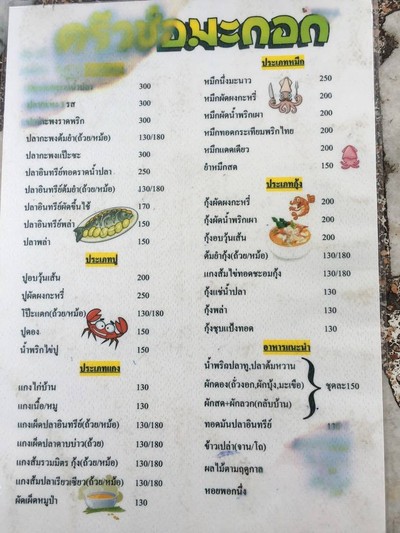 ครัวช่อมะกอก
300
300
ปลากะพงราดพริก 300
ปลากะพงต้มยำ(ถ้วย/หม้อ) 130/180
ปลากะพงแป๊ะซะ 300
ปลาอินทรีย์ทอดราดน้ำปลา 250
ปลาอินทรีย์ต้มยำ(ถ้วย/หม้อ) 130/180
ปลาอินทรีย์ผัดขึ้นใช้ 170
ปลาอินทรีย์พล่า 150
ปลาพล่า 150
ประเภทปู
ปูอบวุ้นเส้น 200
ปูผัดผงกะหรี่ 250
โป๊ะแตก(ถ้วย/หม้อ) 130/180
ปูดอง 150
น้ำพริกไข่ปู 150
ประเภทแกง
แกงไก่บ้าน 130
แกงเนื้อ/หมู 130
แกงเผ็ดปลาอินทรีย์(ถ้วย/หม้อ) 130/180
แกงเผ็ดปลาดาบบ่าว(ถ้วย) 130/180
แกงส้มรวมมิตร กุ้ง(ถ้วย/หม้อ) 130/180
แกงส้มปลาเรียวเซียว(ถ้วย/หม้อ) 130/180
ผัดเผ็ดหมูป่า 130
ประเภทหมึก
หมึกนึ่งมะนาว 250
หมึกผัดผงกะหรี่ 200
หมึกผัดน้ำพริกเผา 200
หมึกทอดกระเทียมพริกไทย 200
หมึกแดดเดียว 200
ยำหมึกสด 150
ประเภทกุ้ง
กุ้งผัดผงกะหรี่ 200
กุ้งผัดน้ำพริกเผา 200
กุ้งอบวุ้นเส้น 200
ต้มยำกุ้ง(ถ้วย/หม้อ) 130/180
แกงส้มไข่ทอดชะอมกุ้ง 130/180
กุ้งแช่น้ำปลา 130
กุ้งพล่า 130
กุ้งชุบแป้งทอด 130
อาหารแนะนำ
น้ำพริกปลาทู,ปลาต้มหวาน
ผักดอง(ถั่วงอก,ผักบุ้ง,มะเขือ) ชุดละ150
ผักสด+ผักลวก(กลับบ้าน)
ทอดมันปลาอินทรีย์ 130
ข้าวเปล่า(จาน/โถ)
ผลไม้ตามฤดูกาล
หอยพอกนึ่ง